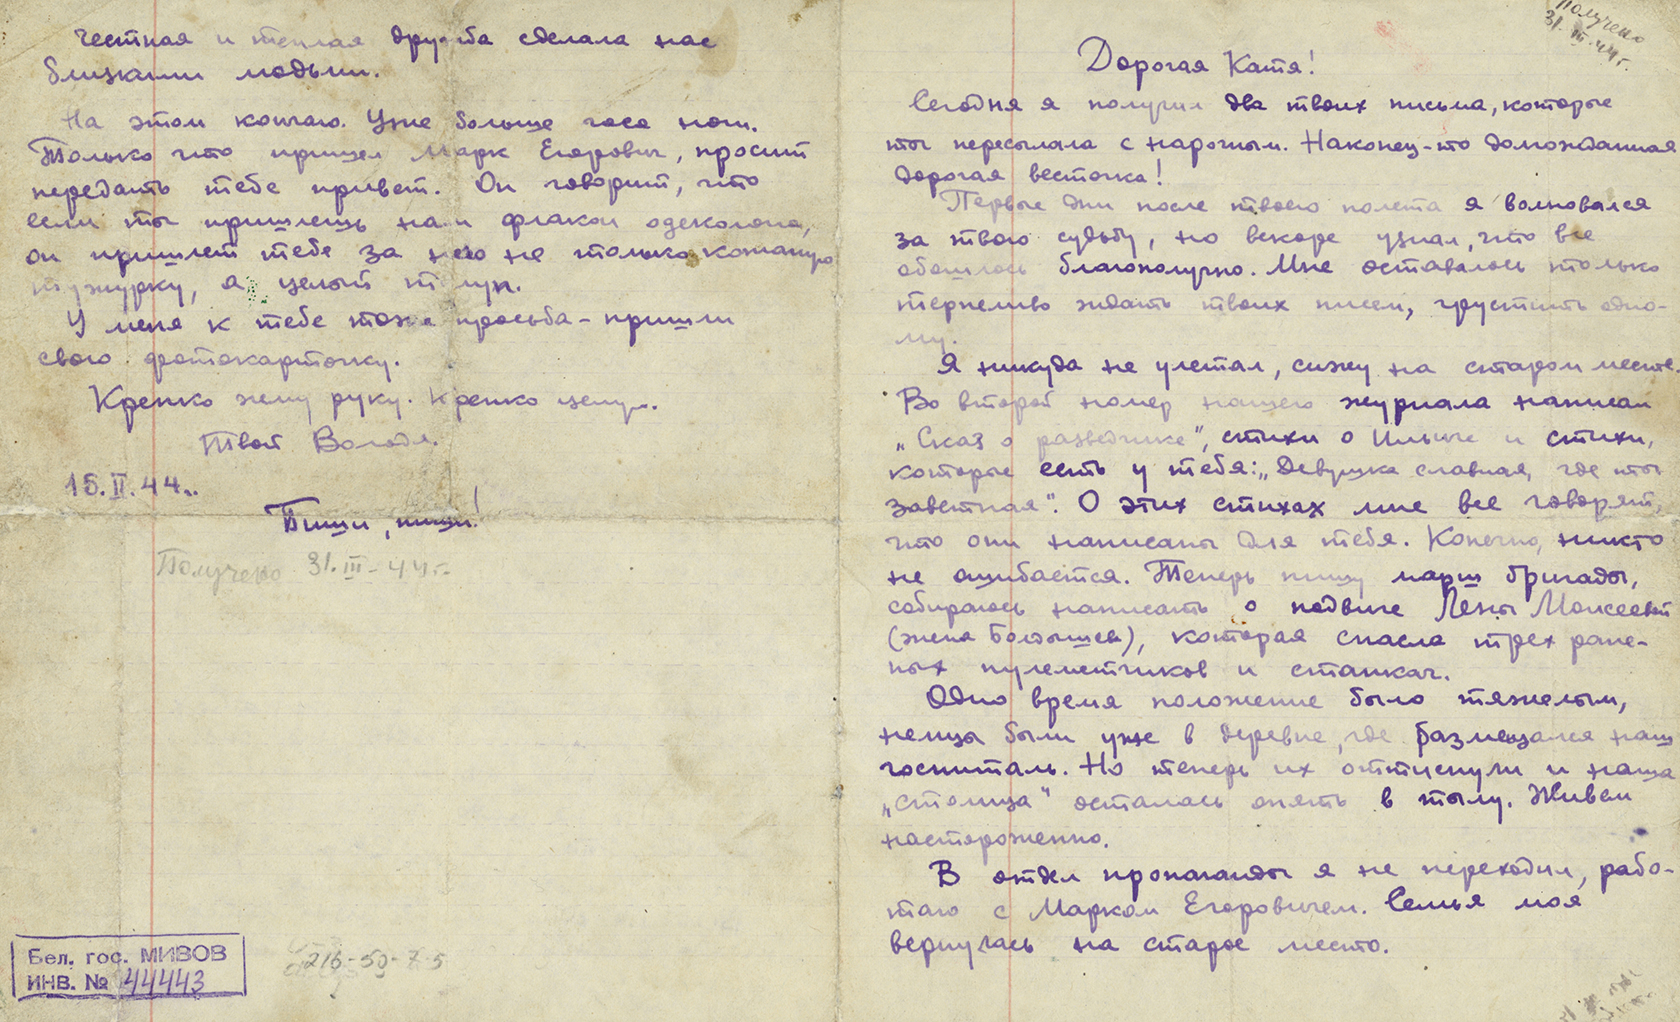 Получено
31.III.44 г.
Дорогая Катя!
Сегодня я получил два твоих письма, которые
ты пересылала с нарочным. Наконец-то долгожданная
дорогая весточка!
Первые дни после твоего полета я волновался
за твою судьбу, но вскоре узнал, что все
обошлось благополучно. Мне оставалось только
терпеливо ждать твоих писем, грустить одно-
му.
Я никуда не улетал, сижу на старом месте.
Во второй номер нашего журнала написал
„Сказ о разведчике", стихи о Ильиче и стихи,
которые есть у тебя: „Девушка славная, где ты
заветная". О этих стихах мне все говорят,
что они написаны для тебя. Конечно, никто
не ошибается. Теперь пишу марш бригады,
собираюсь написать о подвиге Лены Моисеевой
(жена), которая спасла трех ране-
ных пулеметчиков и станкач.
Одно время положение было тяжелым,
немцы были уже в деревне, где размещался наш
госпиталь. Но теперь их оттиснули и наша
„столица" осталась опять в тылу. Живем
настороженно.
В отдел пропаганды я не переходил, рабо-
таю с Марком Егоровичем. Семья моя
вернулась на старое место.
честная и теплая дружба сделала нас
близкими людьми.
На этом кончаю. Уже больше часа ночи.
Только что пришел Марк Егорович, просит
передать тебе привет. Он говорит, что
если ты пришлешь нам флакон одеколона,
он пришлет тебе за него не только кожаную
тужурку, а целый тулуп.
У меня к тебе тоже просьба - пришли
свою фотокарточку.
Крепко жму руку. Крепко целую.
Твой Володя.
15.II.44 г.
Пиши, пиши!
Получено 31.III-44 г.
Бел. гос. МИВОВ
ИНВ. № 44443
216-50-7-5